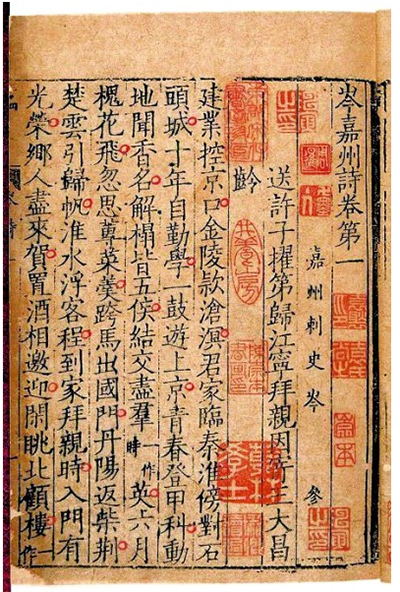 岑嘉州詩卷第一
嘉州刺史岑 參
送許子擢第歸江寧拜親因寄王大昌
齡
建業控京口金陵欵滄溟君家臨秦淮傍對石
頭城十年自勤學一鼓遊上京青春登甲科動
地聞香名解榻皆五侯結交盡羣一作時英六月
槐花飛忽思蓴菜羹跨馬出國門丹陽返柴荆
楚雲引歸帆淮水浮客程到家拜親時入門有
光榮鄉人盡來賀置酒相邀迎閑眺北顧樓一作
宋本
翰林學士